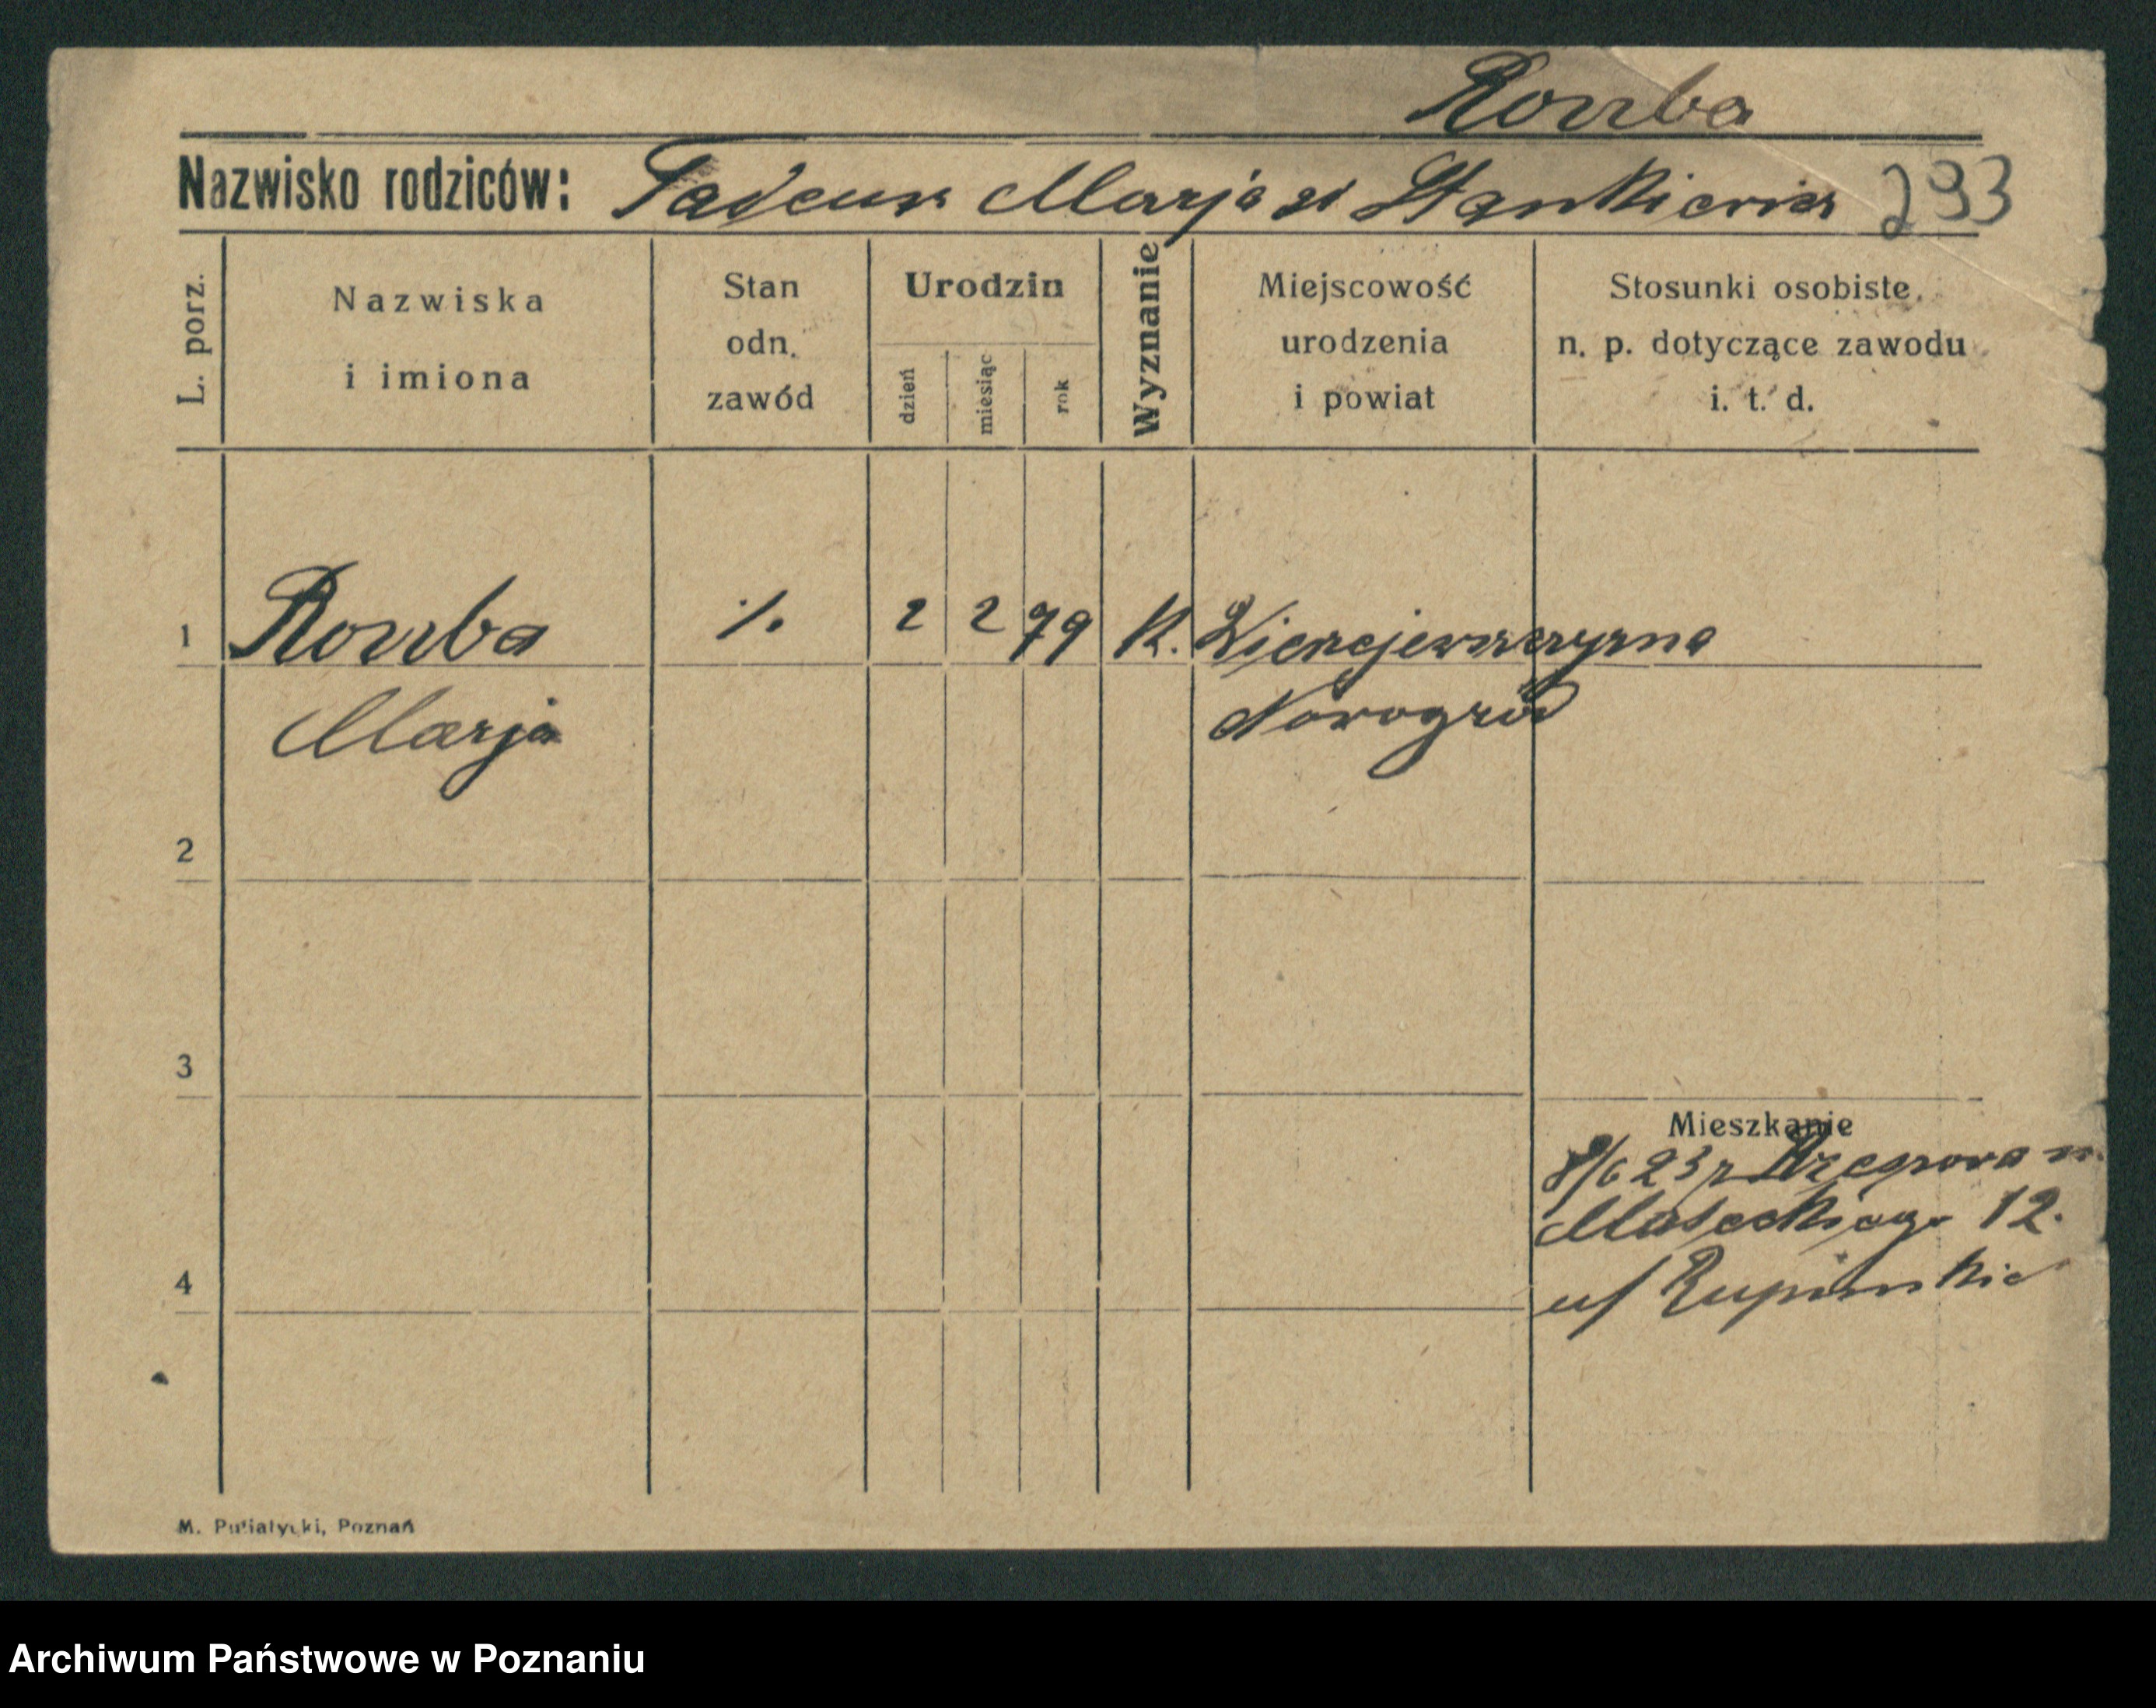 Romba
Nazwisko rodziców: Tadeusz Marja zd Stankiewicz 293
L. porz.
Nazwiska
i imiona
Stan
odn.
zawód
Urodzin
dzień
miesiąc
rok
Wyznanie
Miejscowość
urodzenia
i powiat
Stosunki osobiste,
n. p. dotyczące zawodu
i. t. d.
1 Romba ./. 2 2 79 K.
Marja Nowogród
2
3
Mieszkanie
8/6 23
12.
4
u/
M. Putiatycki, Poznań
Archiwum Państwowe w Poznaniu